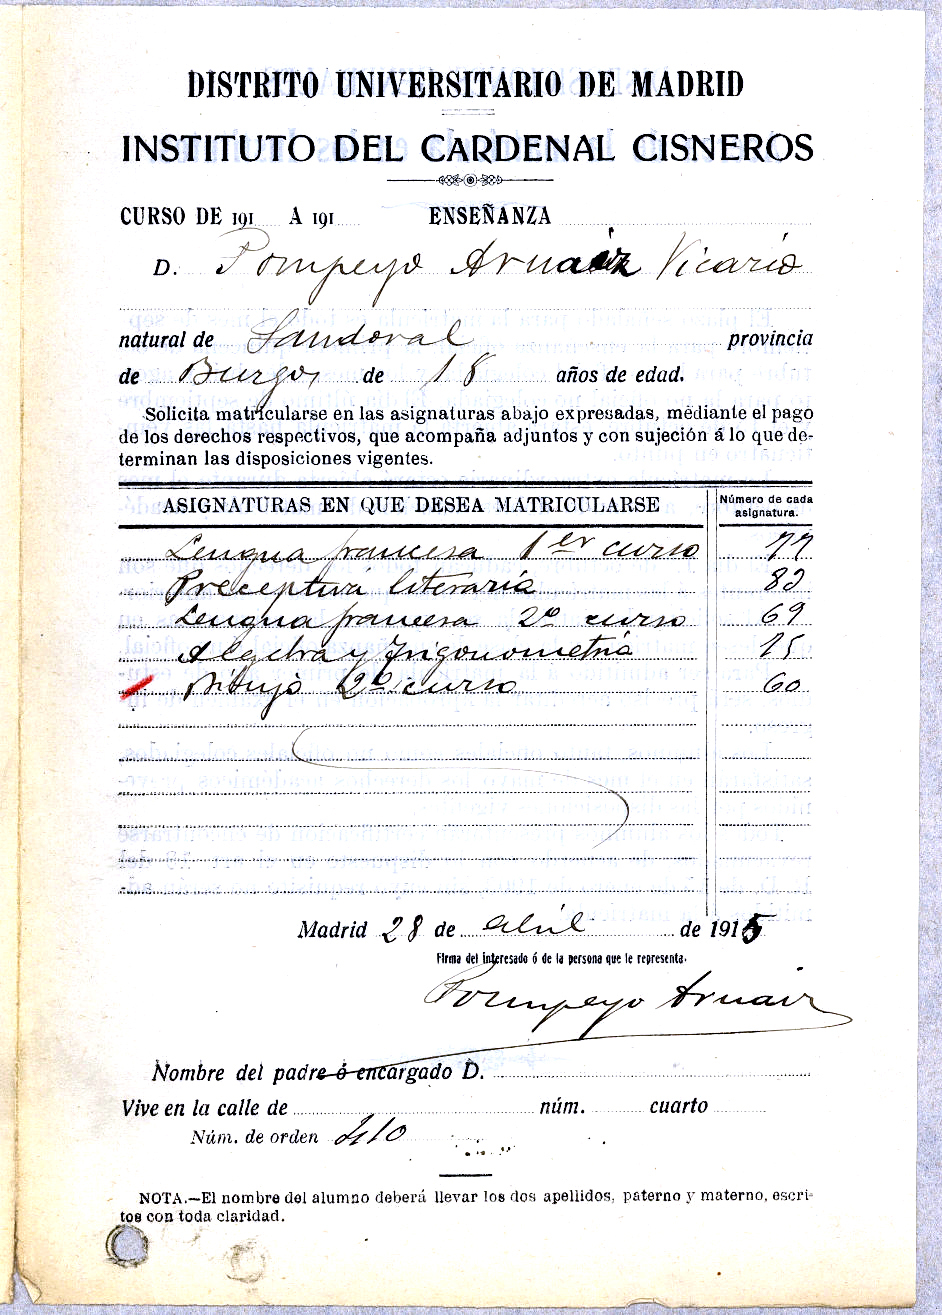 DISTRITO UNIVERSITARIO DE MADRID
INSTITUTO DEL CARDENAL CISNEROS
CURSO DE 191 A 191 ENSEÑANZA
D. Pompeyo Arnaiz Vicario
natural de Sandoval provincia
de Burgos de 18 años de edad.
Solicita matricularse en las asignaturas abajo expresadas, mediante el pago
de los derechos respectivos, que acompaña adjuntos y con sujeción á lo que de-
terminan las disposiciones vigentes.
ASIGNATURAS EN QUE DESEA MATRICULARSE Número de cada
asignatura.
Lengua francesa 1er curso 77
Preceptiva literaria 82
Lengua francesa 2º curso 69
Algebra y Trigonometría 75
Dibujo 2º curso 60
Madrid 28 de abril de 1915
Firma del interesado ó de la persona que le representa.
Pompeyo Arnaiz
Nombre del padre ó encargado D.
Vive en la calle de núm. cuarto
Núm. de orden 410
NOTA.—El nombre del alumno deberá llevar los dos apellidos, paterno y materno, escri-
tos con toda claridad.